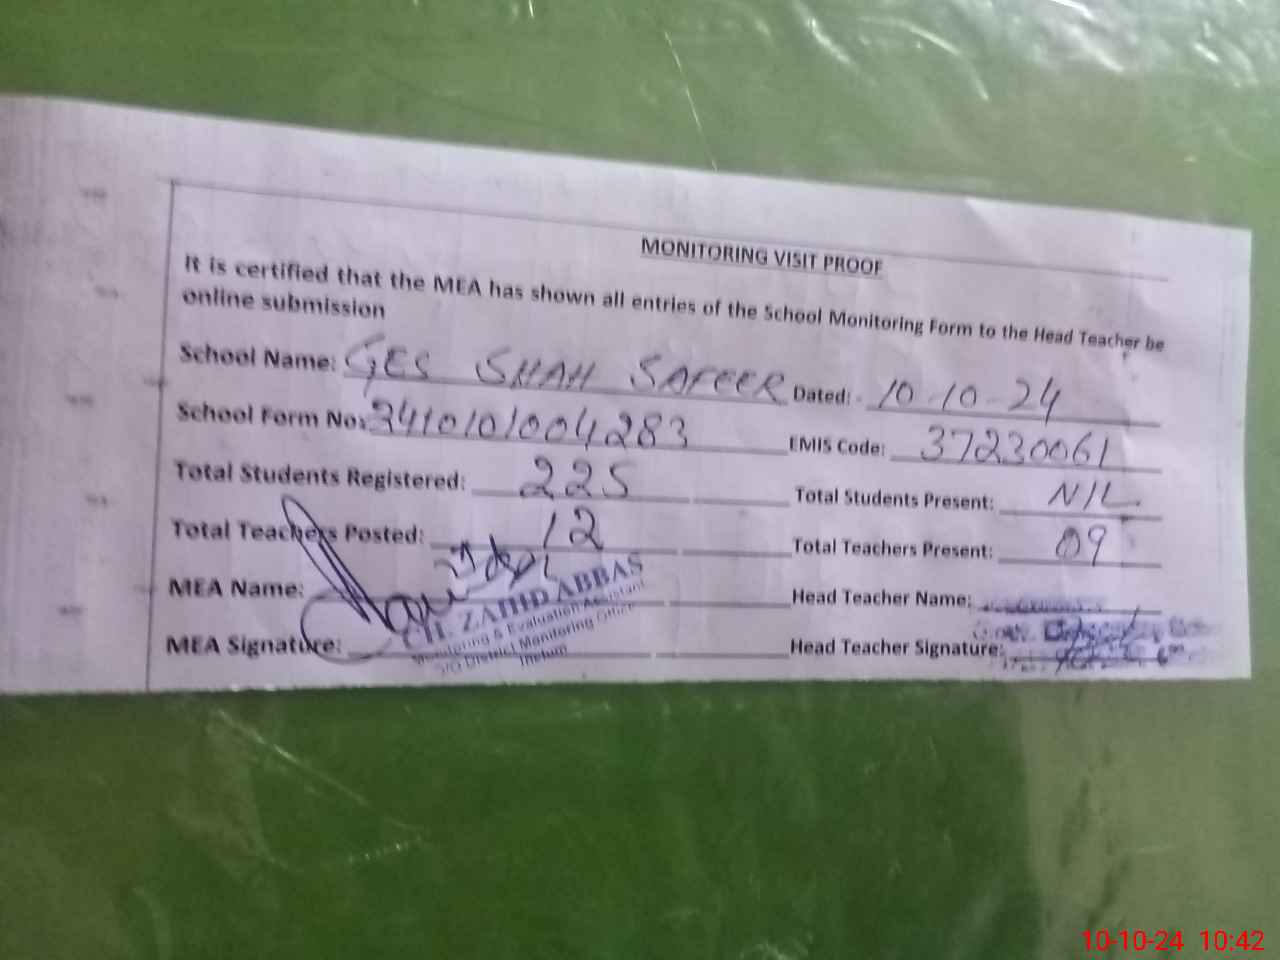 MONITORING VISIT PROOF
It is certified that the MEA has shown all entries of the School Monitoring Form to the Head Teacher be
online submission
School Name: GES SHAH SAFEER Dated: 10-10-24
School Form No: 2410101004283 EMIS Code: 37230061
Total Students Registered: 225 Total Students Present: NIL
Total Teachers Posted: 12 Total Teachers Present: 09
MEA Name: Head Teacher Name:
CH. ZAHID ABBAS
Monitoring & Evaluation Assistant
O/O District Monitoring Office
Jhelum
MEA Signature: Head Teacher Signature:
10-10-24 10:42